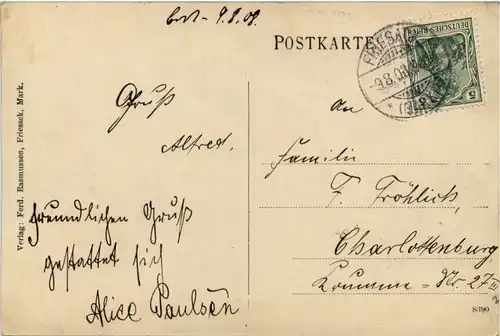 9.8.09.
POSTKARTE
FRIESACK
9.8.09
DEUTSCHES REICH
5
Gruß
Alfred.
Freundlichen Gruß
gestattet sich
Alice Paulsen
An
Familie
F. Fröhlich,
Charlottenburg,
Krumme-Nr. 27 III
Verlag: Ferd. Rasmussen, Friesack, Mark.
8390